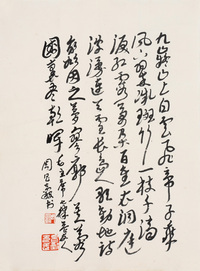 九嶷山上白云飛帝子乘
風下翠微斑竹一枝千滴
淚紅霞萬朵百重衣洞庭
波涌連天雪長島人歌動地詩
我欲因之夢寥廓芙蓉
國裏盡朝暉 毛主席七律答友人
周